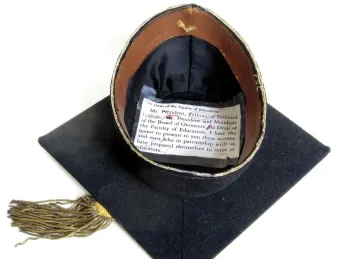 Dean of the Faculty of Education
Mr. President, Fellows of Harvard
College, Mr. President and Members
of the Board of Overseers: As Dean of
the Faculty of Education, I have the
honor to present to you these women
and men who in partnership with us
have prepared themselves to serve as
educators.